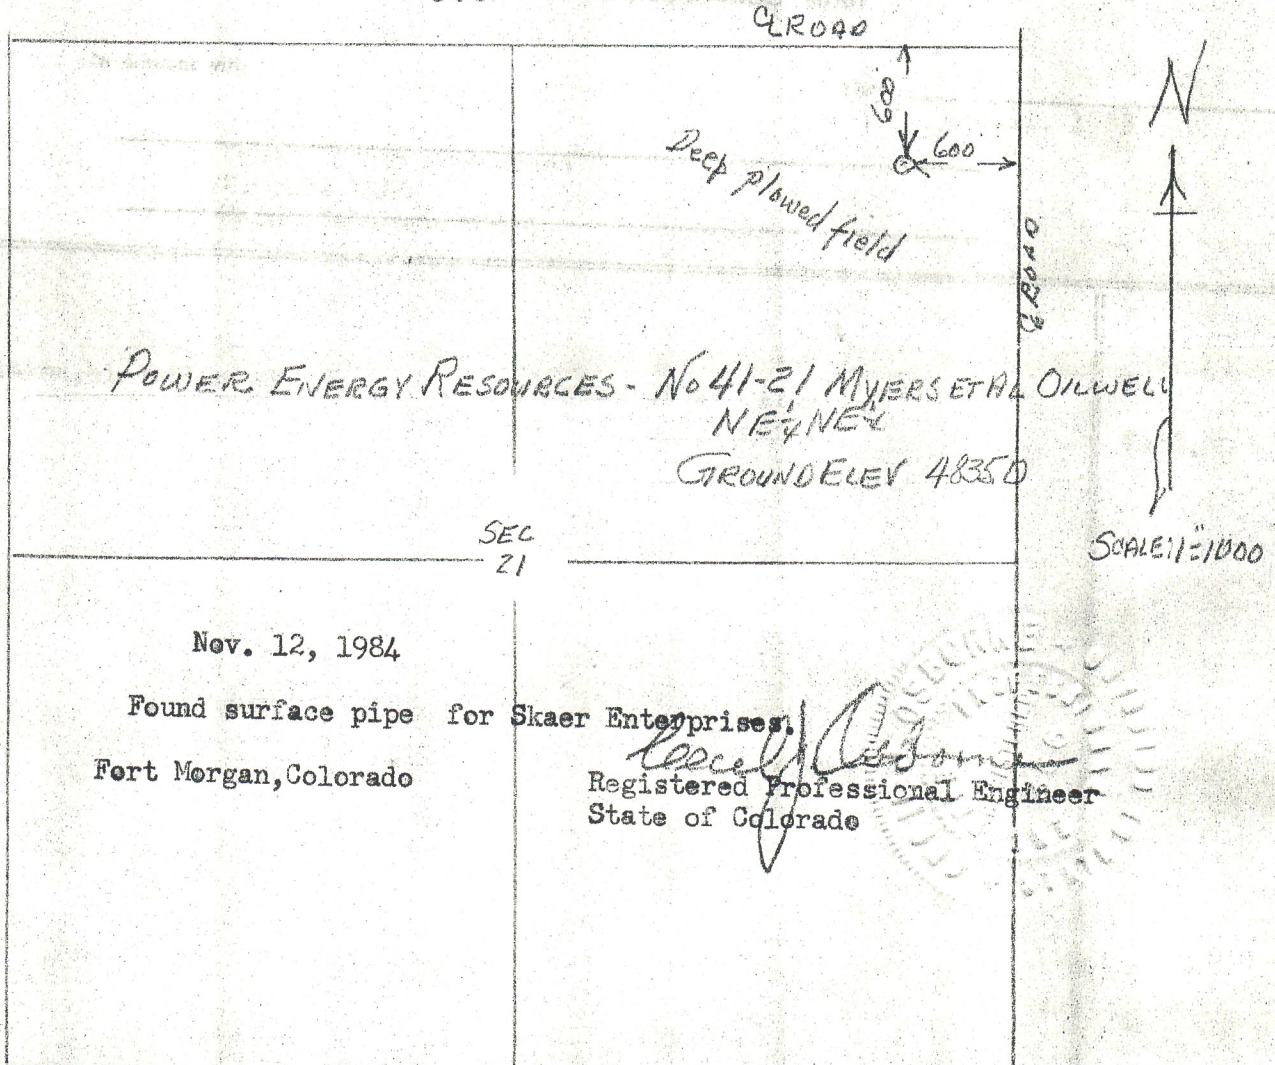 ℄ ROAD
680
600
Deep plowed field
℄ ROAD
N
POWER ENERGY RESOURCES - No 41-21 MYERS ET AL OILWELL
NE¼NE¼
GROUND ELEV 4835.0
SEC
21
SCALE: 1"=1000
Nov. 12, 1984
Found surface pipe for Skaer Enterprises.
Fort Morgan,Colorado
Registered Professional Engineer
State of Colorado